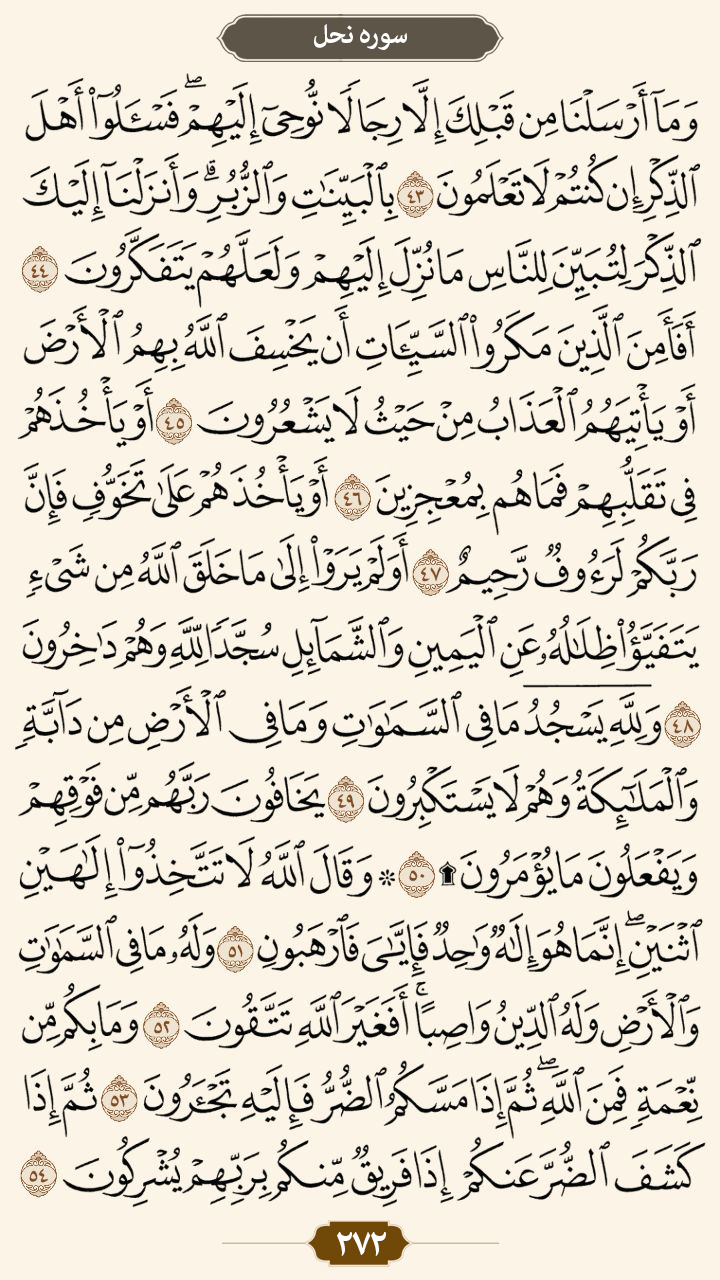 سوره نحل
وَمَآ أَرْسَلْنَا مِن قَبْلِكَ إِلَّا رِجَالًا نُّوحِىٓ إِلَيْهِمْ ۖ فَسْـَٔلُوٓا۟ أَهْلَ
ٱلذِّكْرِ إِن كُنتُمْ لَا تَعْلَمُونَ ٤٣ بِٱلْبَيِّنَـٰتِ وَٱلزُّبُرِ ۗ وَأَنزَلْنَآ إِلَيْكَ
ٱلذِّكْرَ لِتُبَيِّنَ لِلنَّاسِ مَا نُزِّلَ إِلَيْهِمْ وَلَعَلَّهُمْ يَتَفَكَّرُونَ ٤٤
أَفَأَمِنَ ٱلَّذِينَ مَكَرُوا۟ ٱلسَّيِّـَٔاتِ أَن يَخْسِفَ ٱللَّهُ بِهِمُ ٱلْأَرْضَ
أَوْ يَأْتِيَهُمُ ٱلْعَذَابُ مِنْ حَيْثُ لَا يَشْعُرُونَ ٤٥ أَوْ يَأْخُذَهُمْ
فِى تَقَلُّبِهِمْ فَمَا هُم بِمُعْجِزِينَ ٤٦ أَوْ يَأْخُذَهُمْ عَلَىٰ تَخَوُّفٍ فَإِنَّ
رَبَّكُمْ لَرَءُوفٌ رَّحِيمٌ ٤٧ أَوَلَمْ يَرَوْا۟ إِلَىٰ مَا خَلَقَ ٱللَّهُ مِن شَىْءٍ
يَتَفَيَّؤُا۟ ظِلَـٰلُهُۥ عَنِ ٱلْيَمِينِ وَٱلشَّمَآئِلِ سُجَّدًا لِّلَّهِ وَهُمْ دَٰخِرُونَ
٤٨ وَلِلَّهِ يَسْجُدُ مَا فِى ٱلسَّمَـٰوَٰتِ وَمَا فِى ٱلْأَرْضِ مِن دَآبَّةٍ
وَٱلْمَلَـٰٓئِكَةُ وَهُمْ لَا يَسْتَكْبِرُونَ ٤٩ يَخَافُونَ رَبَّهُم مِّن فَوْقِهِمْ
وَيَفْعَلُونَ مَا يُؤْمَرُونَ ۩ ٥٠ * وَقَالَ ٱللَّهُ لَا تَتَّخِذُوٓا۟ إِلَـٰهَيْنِ
ٱثْنَيْنِ ۖ إِنَّمَا هُوَ إِلَـٰهٌ وَٰحِدٌ فَإِيَّـٰىَ فَٱرْهَبُونِ ٥١ وَلَهُۥ مَا فِى ٱلسَّمَـٰوَٰتِ
وَٱلْأَرْضِ وَلَهُ ٱلدِّينُ وَاصِبًا ۚ أَفَغَيْرَ ٱللَّهِ تَتَّقُونَ ٥٢ وَمَا بِكُم مِّن
نِّعْمَةٍ فَمِنَ ٱللَّهِ ۖ ثُمَّ إِذَا مَسَّكُمُ ٱلضُّرُّ فَإِلَيْهِ تَجْـَٔرُونَ ٥٣ ثُمَّ إِذَا
كَشَفَ ٱلضُّرَّ عَنكُمْ إِذَا فَرِيقٌ مِّنكُم بِرَبِّهِمْ يُشْرِكُونَ ٥٤
٢٧٢